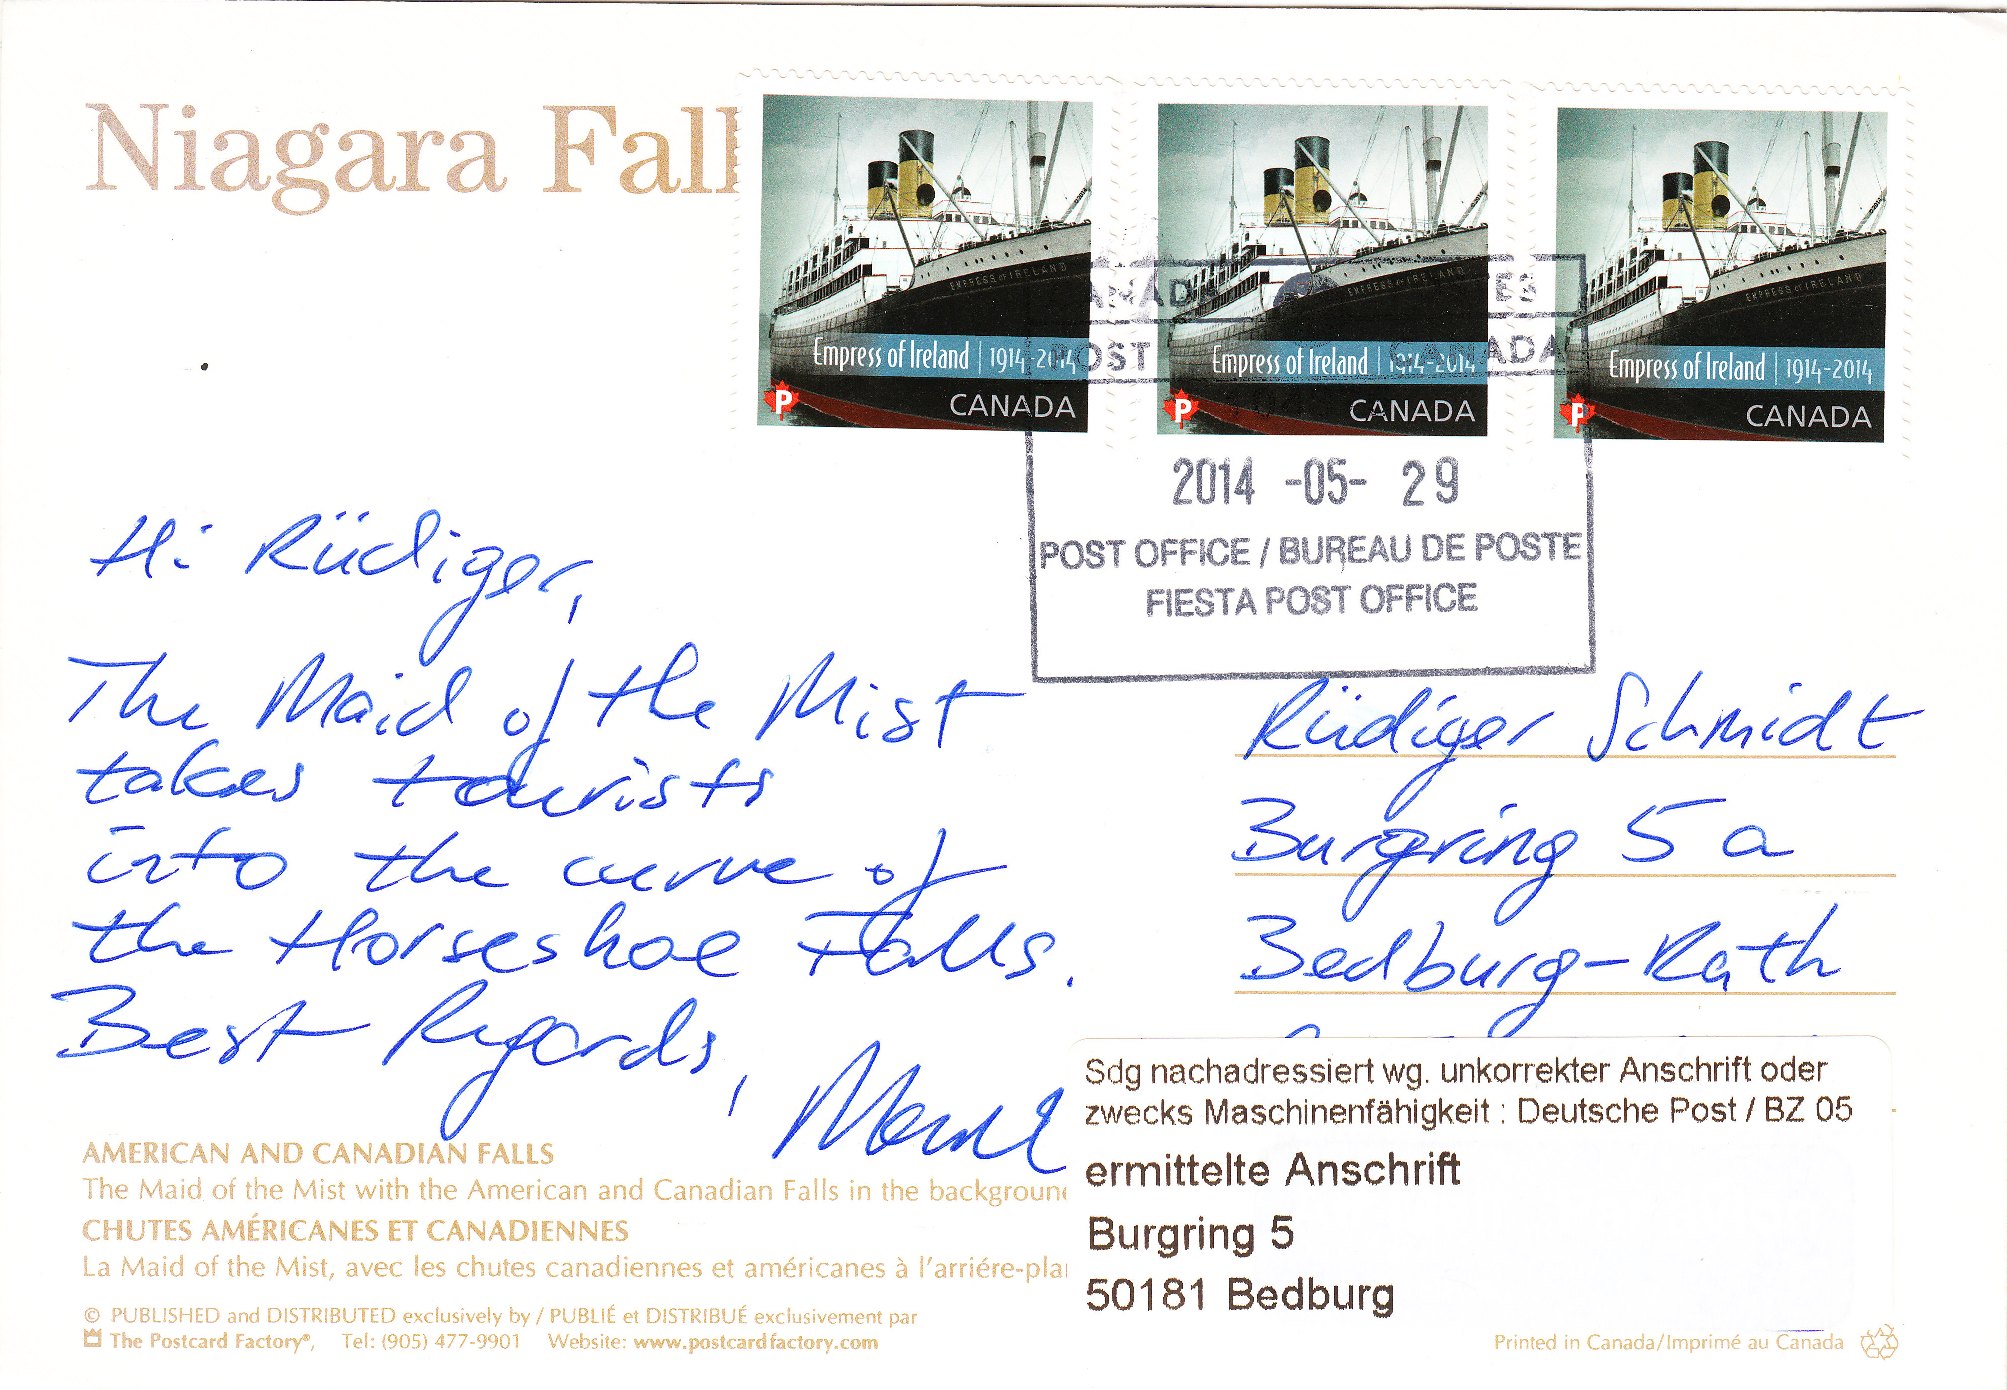 Niagara Fall
EMPRESS OF IRELAND
Empress of Ireland | 1914-2014
P
CANADA
EMPRESS OF IRELAND
Empress of Ireland | 1914-2014
P
CANADA
EMPRESS OF IRELAND
Empress of Ireland | 1914-2014
P
CANADA
CANADA
POST CANADA
2014 -05- 29
POST OFFICE / BUREAU DE POSTE
FIESTA POST OFFICE
Hi Rüdiger,
The Maid of the Mist
takes tourists
into the curve of
the Horseshoe Falls.
Best Regards,
Rüdiger Schmidt
Burgring 5 a
Bedburg-Rath
Sdg nachadressiert wg. unkorrekter Anschrift oder
zwecks Maschinenfähigkeit : Deutsche Post / BZ 05
ermittelte Anschrift
Burgring 5
50181 Bedburg
AMERICAN AND CANADIAN FALLS
The Maid of the Mist with the American and Canadian Falls in the background
CHUTES AMÉRICANES ET CANADIENNES
La Maid of the Mist, avec les chutes canadiennes et américanes à l'arriére-pla
© PUBLISHED and DISTRIBUTED exclusively by / PUBLIÉ et DISTRIBUÉ exclusivement par
The Postcard Factory®, Tel: (905) 477-9901 Website: www.postcardfactory.com
Printed in Canada/Imprimé au Canada